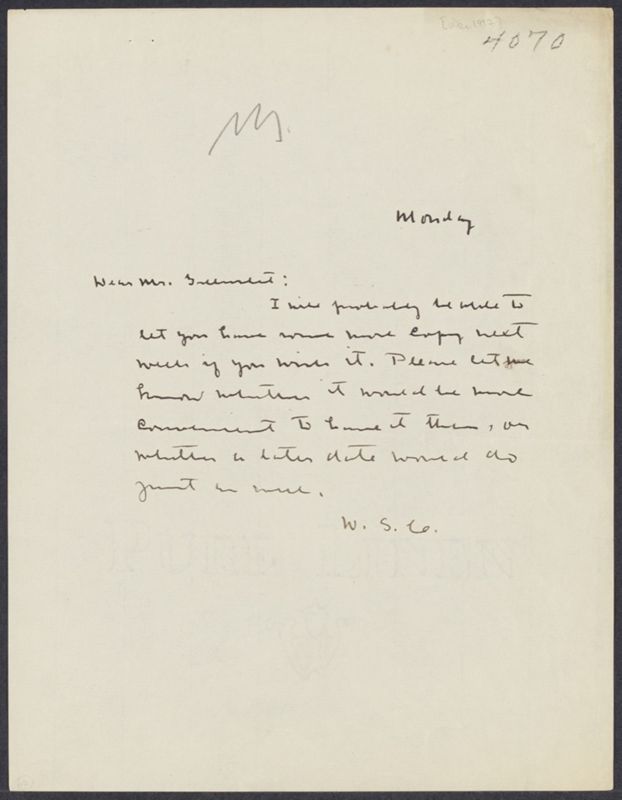 4070
Monday
Dear Mr. Greenslet:
I will probably be able to
let you have some more copy next
week if you wish it. Please let me
know whether it would be more
convenient to have it then, or
whether a later date would do
just as well.
W. S. C.